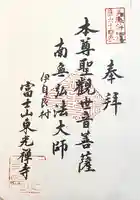 奉拝
本尊聖観世音菩薩
南無弘法大師
伊自良村
富士山東光禅寺